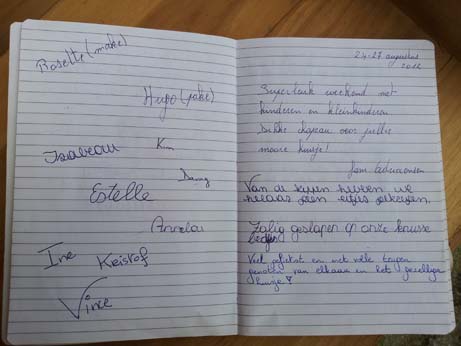 Rosette (make)
Hugo (pake)
Isabeau
Kim
Danny
Estelle
Annelou
Ine
Kristof
Vince
24-27 augustus
Superleuk weekend met
kinderen en kleinkinderen
Dikke chapeau voor jullie
mooie huisje!
fam
Van de kippen hebben we
helaas geen eitjes gekregen.
Zalig geslapen op onze knusse
bedjes
Veel gefietst en met volle teugen
genoten van elkaar en het gezellige
huisje